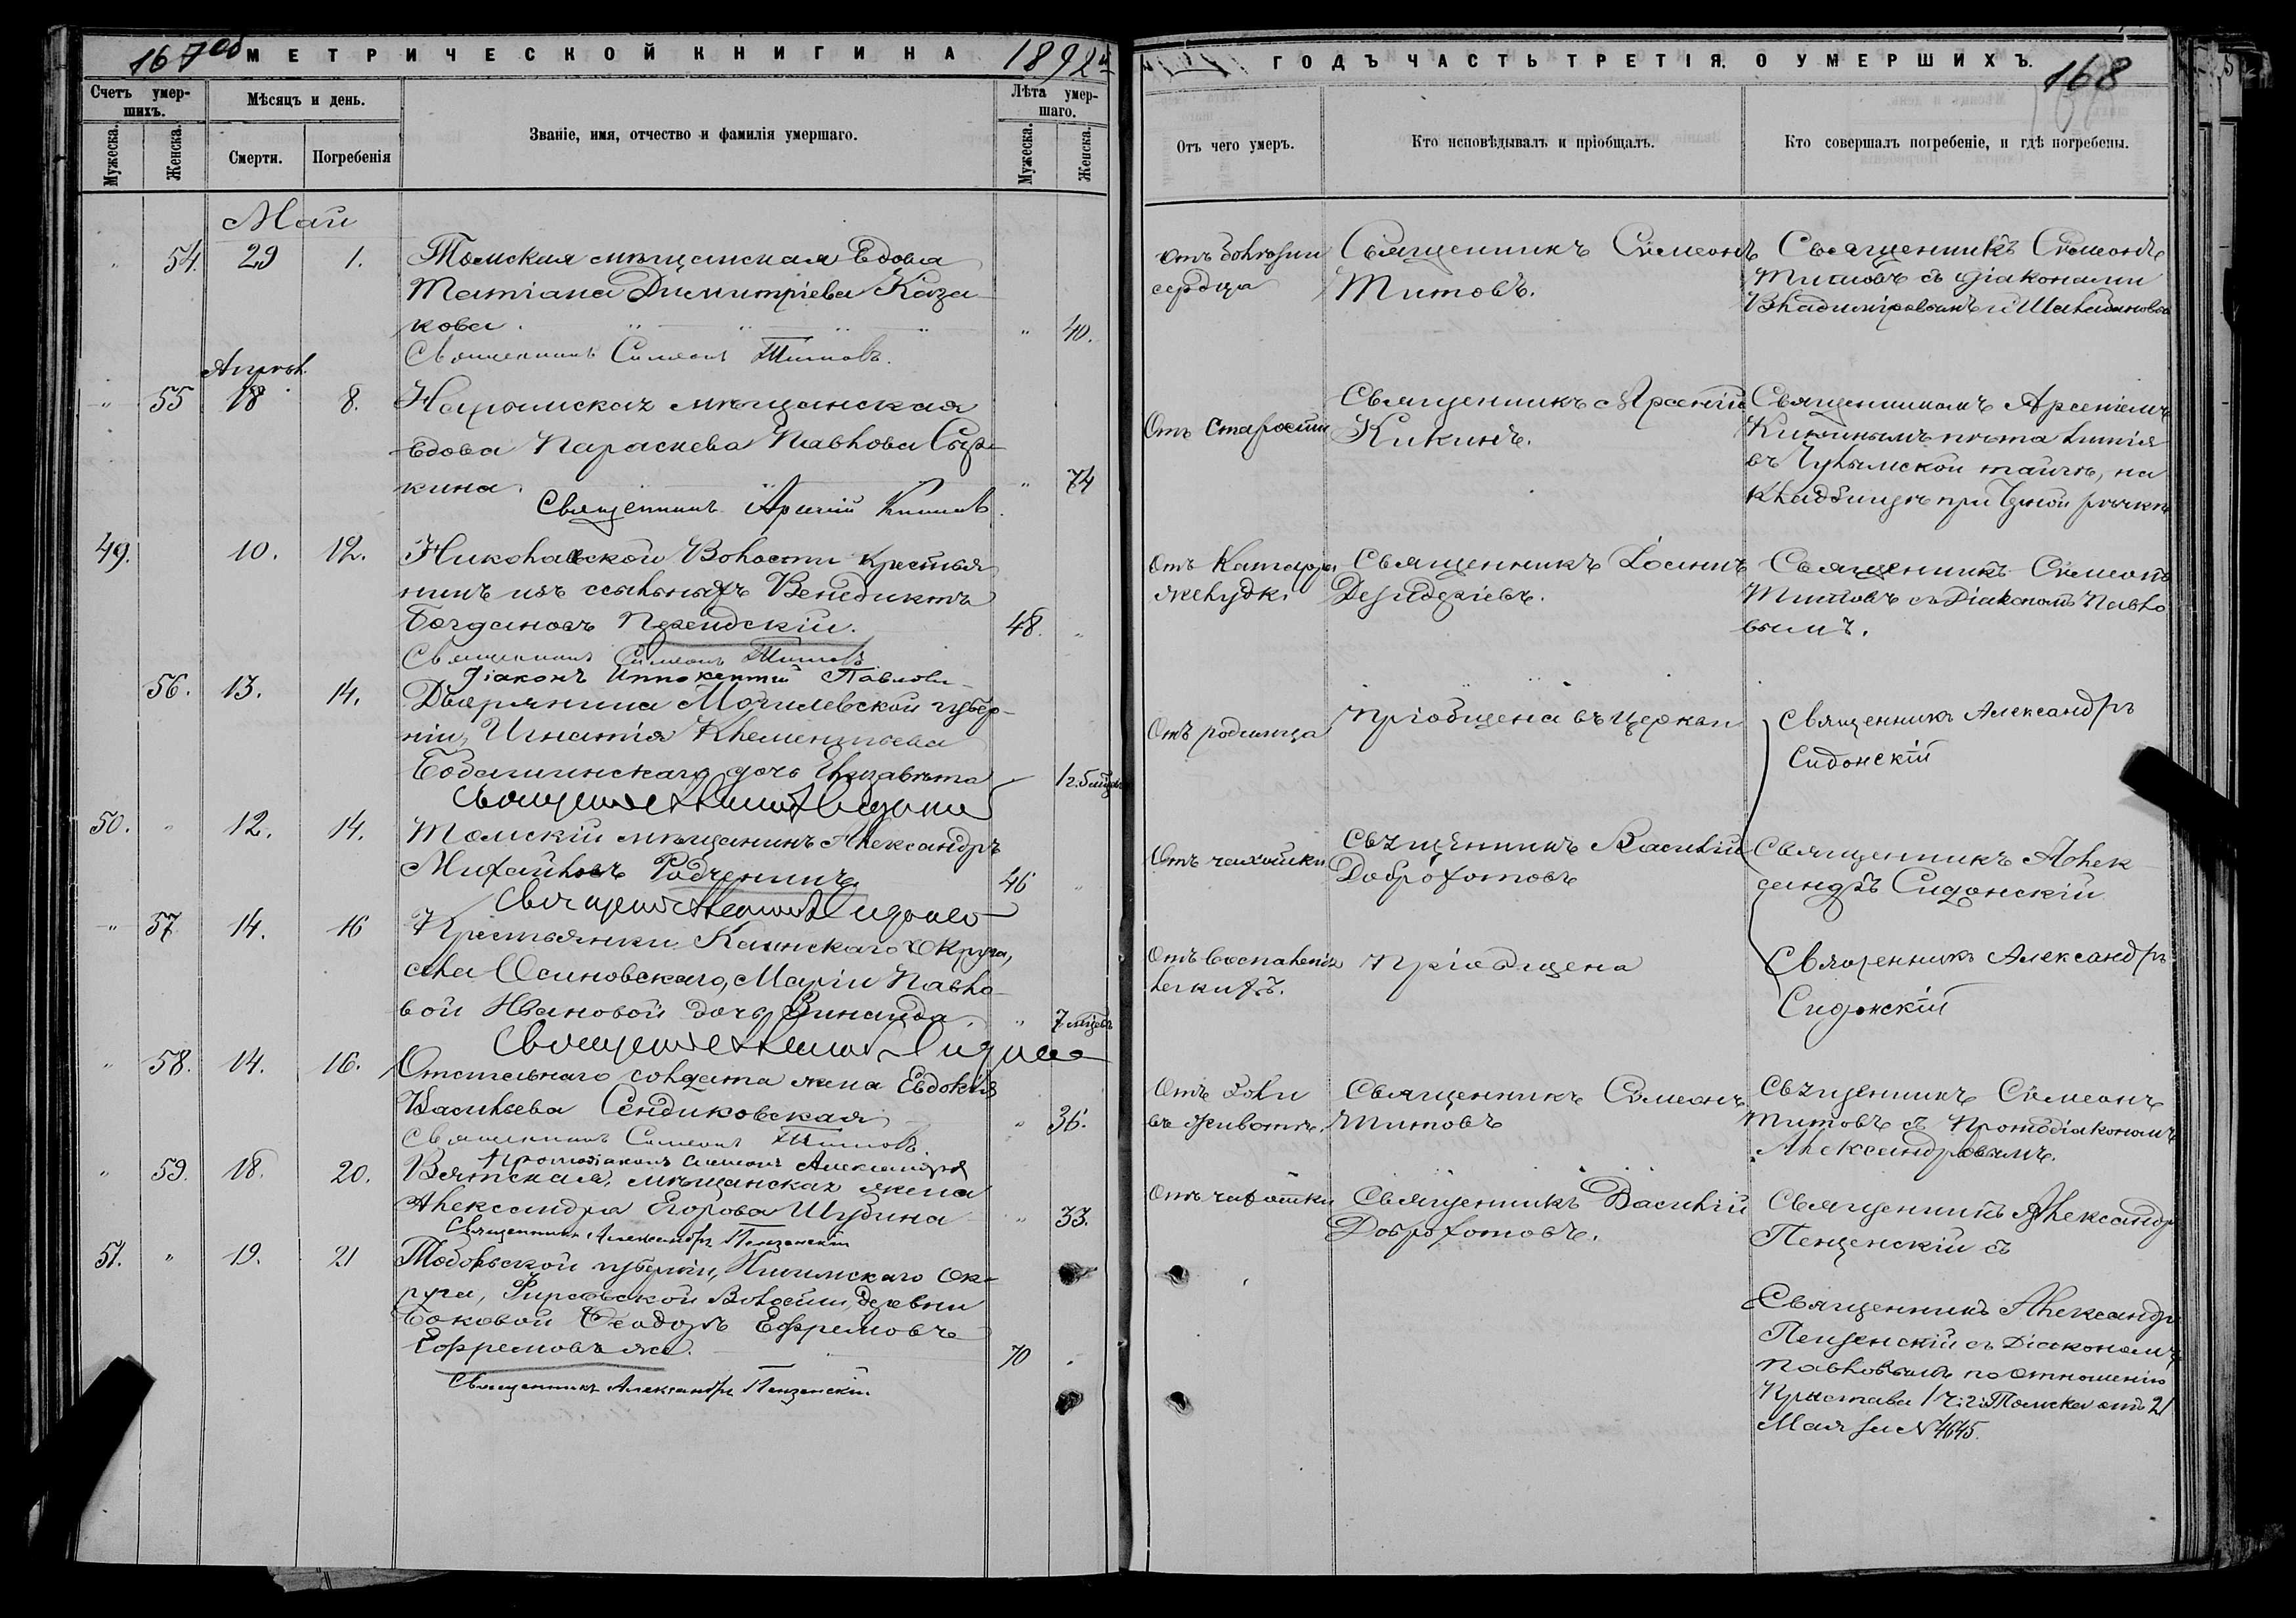 167об МЕТРИЧЕСКОЙ КНИГИ НА 1892й
Счетъ умер-
шихъ.
Мѣсяцъ и день.
Званіе, имя, отчество и фамилія умершаго.
Лѣта умер-
шаго.
Мужеска.
Женска.
Смерти.
Погребенія
Мужеска.
Женска.
Май
54. 29 1. Томская мѣщанская вдова
Татіана Димитріева Каза-
кова. 40.
Священникъ Симеонъ Титовъ.
Апрѣл.
55 18 8. Нарымская мѣщанская
вдова Параскева Павлова Сыр-
кина. 74
Священникъ Арсеній Кикинъ
49. 10. 12. Николаевской Волости крестья
нинъ изъ ссыльныхъ Венедиктъ
Богдановъ 48.
Священникъ Симеонъ Титовъ
Діаконъ Иннокентій Павловъ
56. 13. 14. Дворянина Могилевской губер-
ніи, Игнатія Клементьева
дочь Елизавета 1 г.
Священникъ
50. 12. 14. Томскій мѣщанинъ Александръ
Михайловъ Родченинъ 46
Священникъ
57 14. 16 Крестьянки Каинскаго Округа,
села Осиновскаго, Маріи Павло-
вой Ивановой дочь Зинаида. 7 мѣсяцевъ
Священникъ
58. 14. 16. Отстављнаго солдата жена Евдокія
Васильева Сендиковская 36.
Священникъ Симеонъ Титовъ.
Протодіаконъ Симеонъ Александровъ
59. 18. 20. Вятская, мѣщанская жена
Александра Егорова Шубина 33.
Священникъ Александръ Пензенскій
51. 19. 21 Тобольской губерніи, Ишимскаго Ок-
руга, Фирсовской Волости, деревни
Боковой Ѳеодоръ Ефремовъ
Ефремовъ же. 70
Священникъ Александръ Пензенскій
ГОДЪ ЧАСТЬ ТРЕТІЯ. О УМЕРШИХЪ. 168
Отъ чего умеръ.
Кто исповѣдывалъ и пріобщалъ.
Кто совершалъ погребеніе, и гдѣ погребены.
отъ болѣзни
сердца
Священникъ Симеонъ
Титовъ.
Священникъ Симеонъ
Титовъ съ діаконами
Владиміровымъ и
Отъ старости
Священникъ Арсеній
Кикинъ.
Священникомъ Арсеніемъ
Кикинымъ
въ Чулымской тайгѣ, на
кладбищѣ при рѣчкѣ
Отъ катарра
желудка
Священникъ Іоаннъ
Дезидеріевъ.
Священникъ Симеонъ
Титовъ съ Діакономъ Павло
вымъ.
Отъ родимца
пріобщена въ церкви
Священникъ Александръ
Сидонскій
Отъ чахотки
Священникъ Василій
Доброхотовъ
Священникъ Алек
сандръ Сидонскій
Отъ воспаленія
легкихъ.
пріобщена
Священникъ Александръ
Сидонскій
Отъ боли
въ животѣ.
Священникъ Симеонъ
Титовъ
Священникъ Симеонъ
Титовъ съ Протодіакономъ
Александровымъ.
Отъ чахотки
Священникъ Василій
Доброхотовъ.
Священникъ Александръ
Пензенскій съ
Священникъ Александръ
Пензенскій съ Діакономъ
Павловымъ по отношенію
Пристава 1 ч. г. Томска отъ 21
Мая за № 4645.